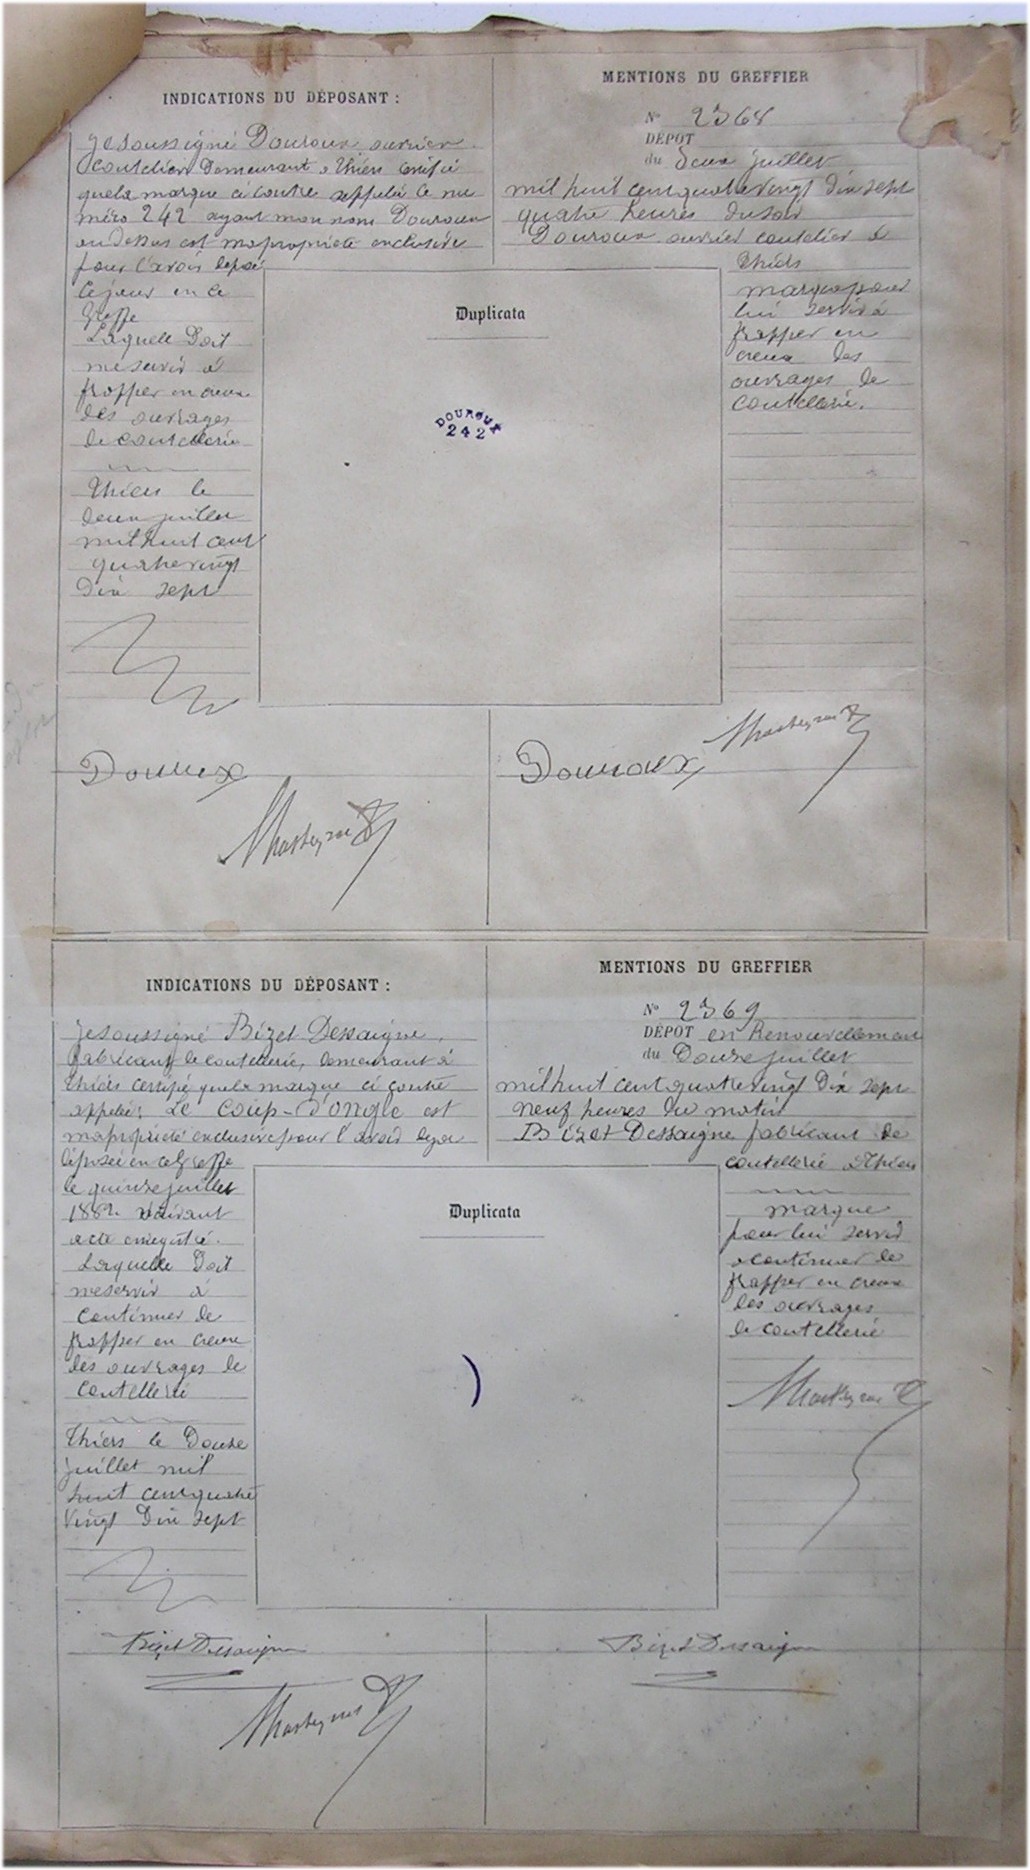 INDICATIONS DU DÉPOSANT :
Je soussigné Douroux ouvrier
coutelier Demeurant à Thiers certifie
que la marque ci contre appelée le nu
méro 242 ayant mon nom Douroux
au dessus est ma propriété exclusive
pour l'avoir déposé
ce jour en ce
Greffe
Laquelle Doit
me servir à
frapper en creux
des ouvrages
de coutellerie
Thiers le
deux juillet
mil huit cent
quatre vingt
Dix sept
Douroux
MENTIONS DU GREFFIER
N° 2368
DÉPOT
du Deux juillet
mil huit cent quatre vingt Dix sept
quatre heures du soir
Douroux ouvrier coutelier à
Thiers
marque pour
lui servir à
frapper en
creux des
ouvrages de
coutellerie.
Duplicata
DOUROUX
242
Douroux
INDICATIONS DU DÉPOSANT :
Je soussigné Bizet Dessaigne,
fabricant de coutellerie, demeurant à
Thiers certifie que la marque ci contre
appelée; Le Coup-D'ongle est
ma propriété exclusive pour l'avoir deja
déposée en ce Greffe
le quinze juillet
1882 suivant
acte enregistré.
Laquelle Doit
me servir à
continuer de
frapper en creux
des ouvrages de
coutellerie
Thiers le Douze
juillet mil
huit cent quatre
vingt Dix sept
Bizet Dessaigne
MENTIONS DU GREFFIER
N° 2369
DÉPOT en Renouvellement
du Douze juillet
mil huit cent quatre vingt Dix sept
neuf heures du matin
Bizet Dessaigne fabricant de
coutellerie à Thiers
marque
pour lui servir
à continuer de
frapper en creux
des ouvrages
de coutellerie
Duplicata
Bizet Dessaigne